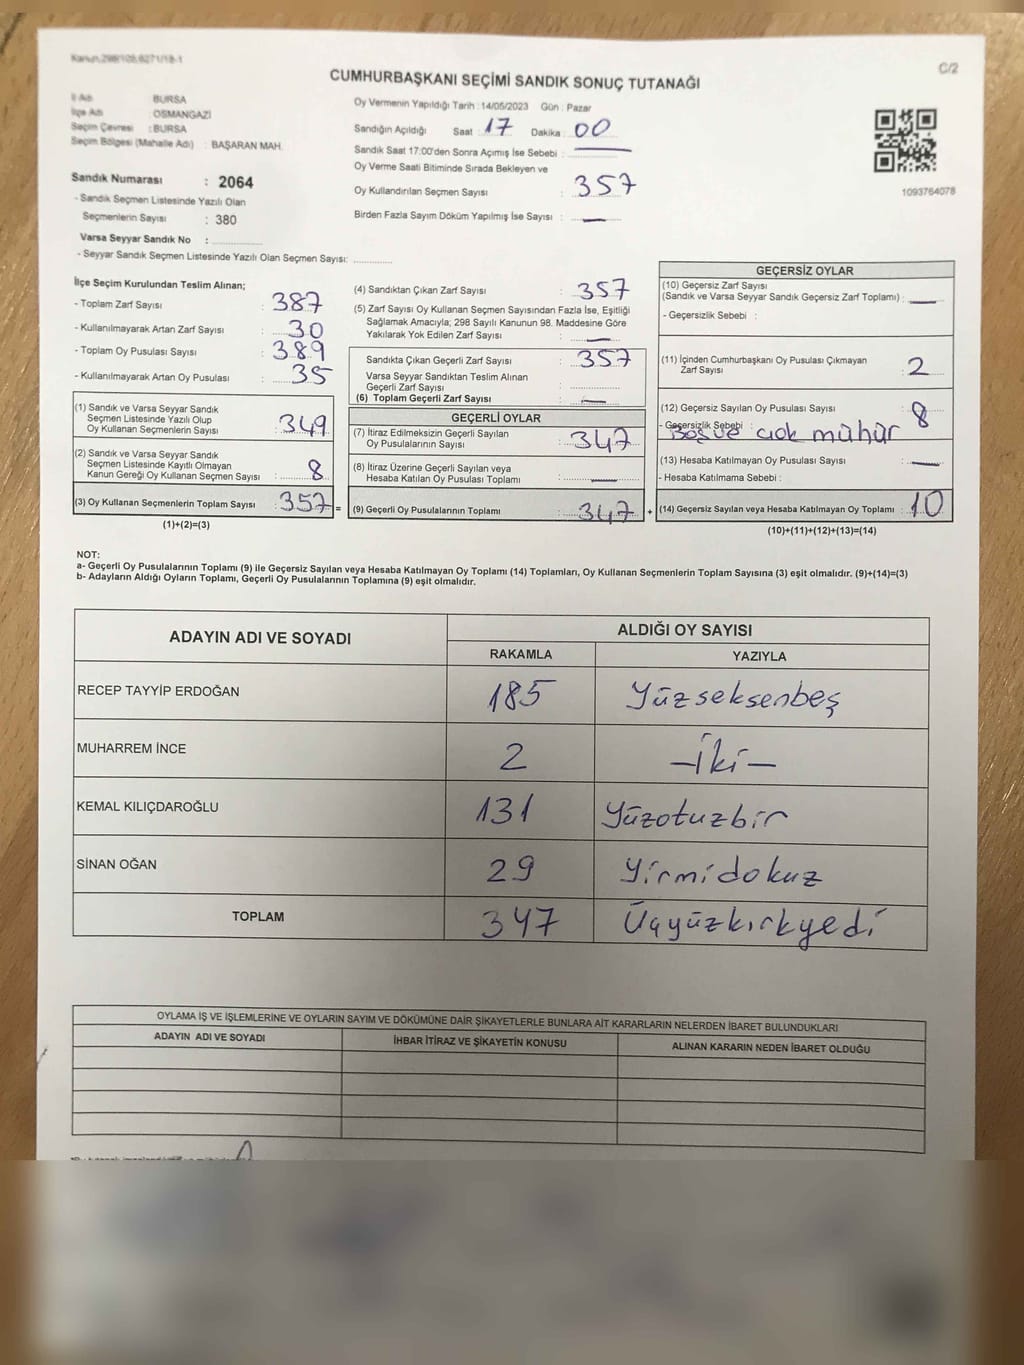 Kanun,298/105,6271/18-1
C/2
CUMHURBAŞKANI SEÇİMİ SANDIK SONUÇ TUTANAĞI
İl Adı BURSA
İlçe Adı : OSMANGAZİ
Seçim Çevresi : BURSA
Seçim Bölgesi (Mahalle Adı) : BAŞARAN MAH.
Sandık Numarası : 2064
- Sandık Seçmen Listesinde Yazılı Olan
Seçmenlerin Sayısı : 380
Varsa Seyyar Sandık No :
- Seyyar Sandık Seçmen Listesinde Yazılı Olan Seçmen Sayısı:
Oy Vermenin Yapıldığı Tarih : 14/05/2023 Gün : Pazar
Sandığın Açıldığı Saat : 17 Dakika : 00
Sandık Saat 17:00'den Sonra Açımış İse Sebebi : —
Oy Verme Saati Bitiminde Sırada Bekleyen ve
Oy Kullandırılan Seçmen Sayısı 357
Birden Fazla Sayım Döküm Yapılmış İse Sayısı : —
1093764078
İlçe Seçim Kurulundan Teslim Alınan;
- Toplam Zarf Sayısı : 387
- Kullanılmayarak Artan Zarf Sayısı : 30
- Toplam Oy Pusulası Sayısı : 389
- Kullanılmayarak Artan Oy Pusulası : 35
(1) Sandık ve Varsa Seyyar Sandık
Seçmen Listesinde Yazılı Olup
Oy Kullanan Seçmenlerin Sayısı : 349
(2) Sandık ve Varsa Seyyar Sandık
Seçmen Listesinde Kayıtlı Olmayan
Kanun Gereği Oy Kullanan Seçmen Sayısı : 8
(3) Oy Kullanan Seçmenlerin Toplam Sayısı : 357 =
(1)+(2)=(3)
(4) Sandıktan Çıkan Zarf Sayısı : 357
(5) Zarf Sayısı Oy Kullanan Seçmen Sayısından Fazla İse, Eşitliği
Sağlamak Amacıyla; 298 Sayılı Kanunun 98. Maddesine Göre
Yakılarak Yok Edilen Zarf Sayısı : —
Sandıkta Çıkan Geçerli Zarf Sayısı : 357
Varsa Seyyar Sandıktan Teslim Alınan
Geçerli Zarf Sayısı :
(6) Toplam Geçerli Zarf Sayısı : —
GEÇERLİ OYLAR
(7) İtiraz Edilmeksizin Geçerli Sayılan
Oy Pusulalarının Sayısı : 347
(8) İtiraz Üzerine Geçerli Sayılan veya
Hesaba Katılan Oy Pusulası Toplamı : —
(9) Geçerli Oy Pusulalarının Toplamı : 347 +
GEÇERSİZ OYLAR
(10) Geçersiz Zarf Sayısı
(Sandık ve Varsa Seyyar Sandık Geçersiz Zarf Toplamı) : —
- Geçersizlik Sebebi :
(11) İçinden Cumhurbaşkanı Oy Pusulası Çıkmayan
Zarf Sayısı : 2
(12) Geçersiz Sayılan Oy Pusulası Sayısı : 8
- Geçersizlik Sebebi : Boş ve çok mühür
(13) Hesaba Katılmayan Oy Pusulası Sayısı : —
- Hesaba Katılmama Sebebi :
(14) Geçersiz Sayılan veya Hesaba Katılmayan Oy Toplamı : 10
(10)+(11)+(12)+(13)=(14)
NOT:
a- Geçerli Oy Pusulalarının Toplamı (9) ile Geçersiz Sayılan veya Hesaba Katılmayan Oy Toplamı (14) Toplamları, Oy Kullanan Seçmenlerin Toplam Sayısına (3) eşit olmalıdır. (9)+(14)=(3)
b- Adayların Aldığı Oyların Toplamı, Geçerli Oy Pusulalarının Toplamına (9) eşit olmalıdır.
ADAYIN ADI VE SOYADI ALDIĞI OY SAYISI
RAKAMLA YAZIYLA
RECEP TAYYİP ERDOĞAN 185 Yüzseksenbeş
MUHARREM İNCE 2 —İki—
KEMAL KILIÇDAROĞLU 131 Yüzotuzbir
SİNAN OĞAN 29 Yirmidokuz
TOPLAM 347 Üçyüzkırkyedi
OYLAMA İŞ VE İŞLEMLERİNE VE OYLARIN SAYIM VE DÖKÜMÜNE DAİR ŞİKAYETLERLE BUNLARA AİT KARARLARIN NELERDEN İBARET BULUNDUKLARI
ADAYIN ADI VE SOYADI İHBAR İTİRAZ VE ŞİKAYETİN KONUSU ALINAN KARARIN NEDEN İBARET OLDUĞU